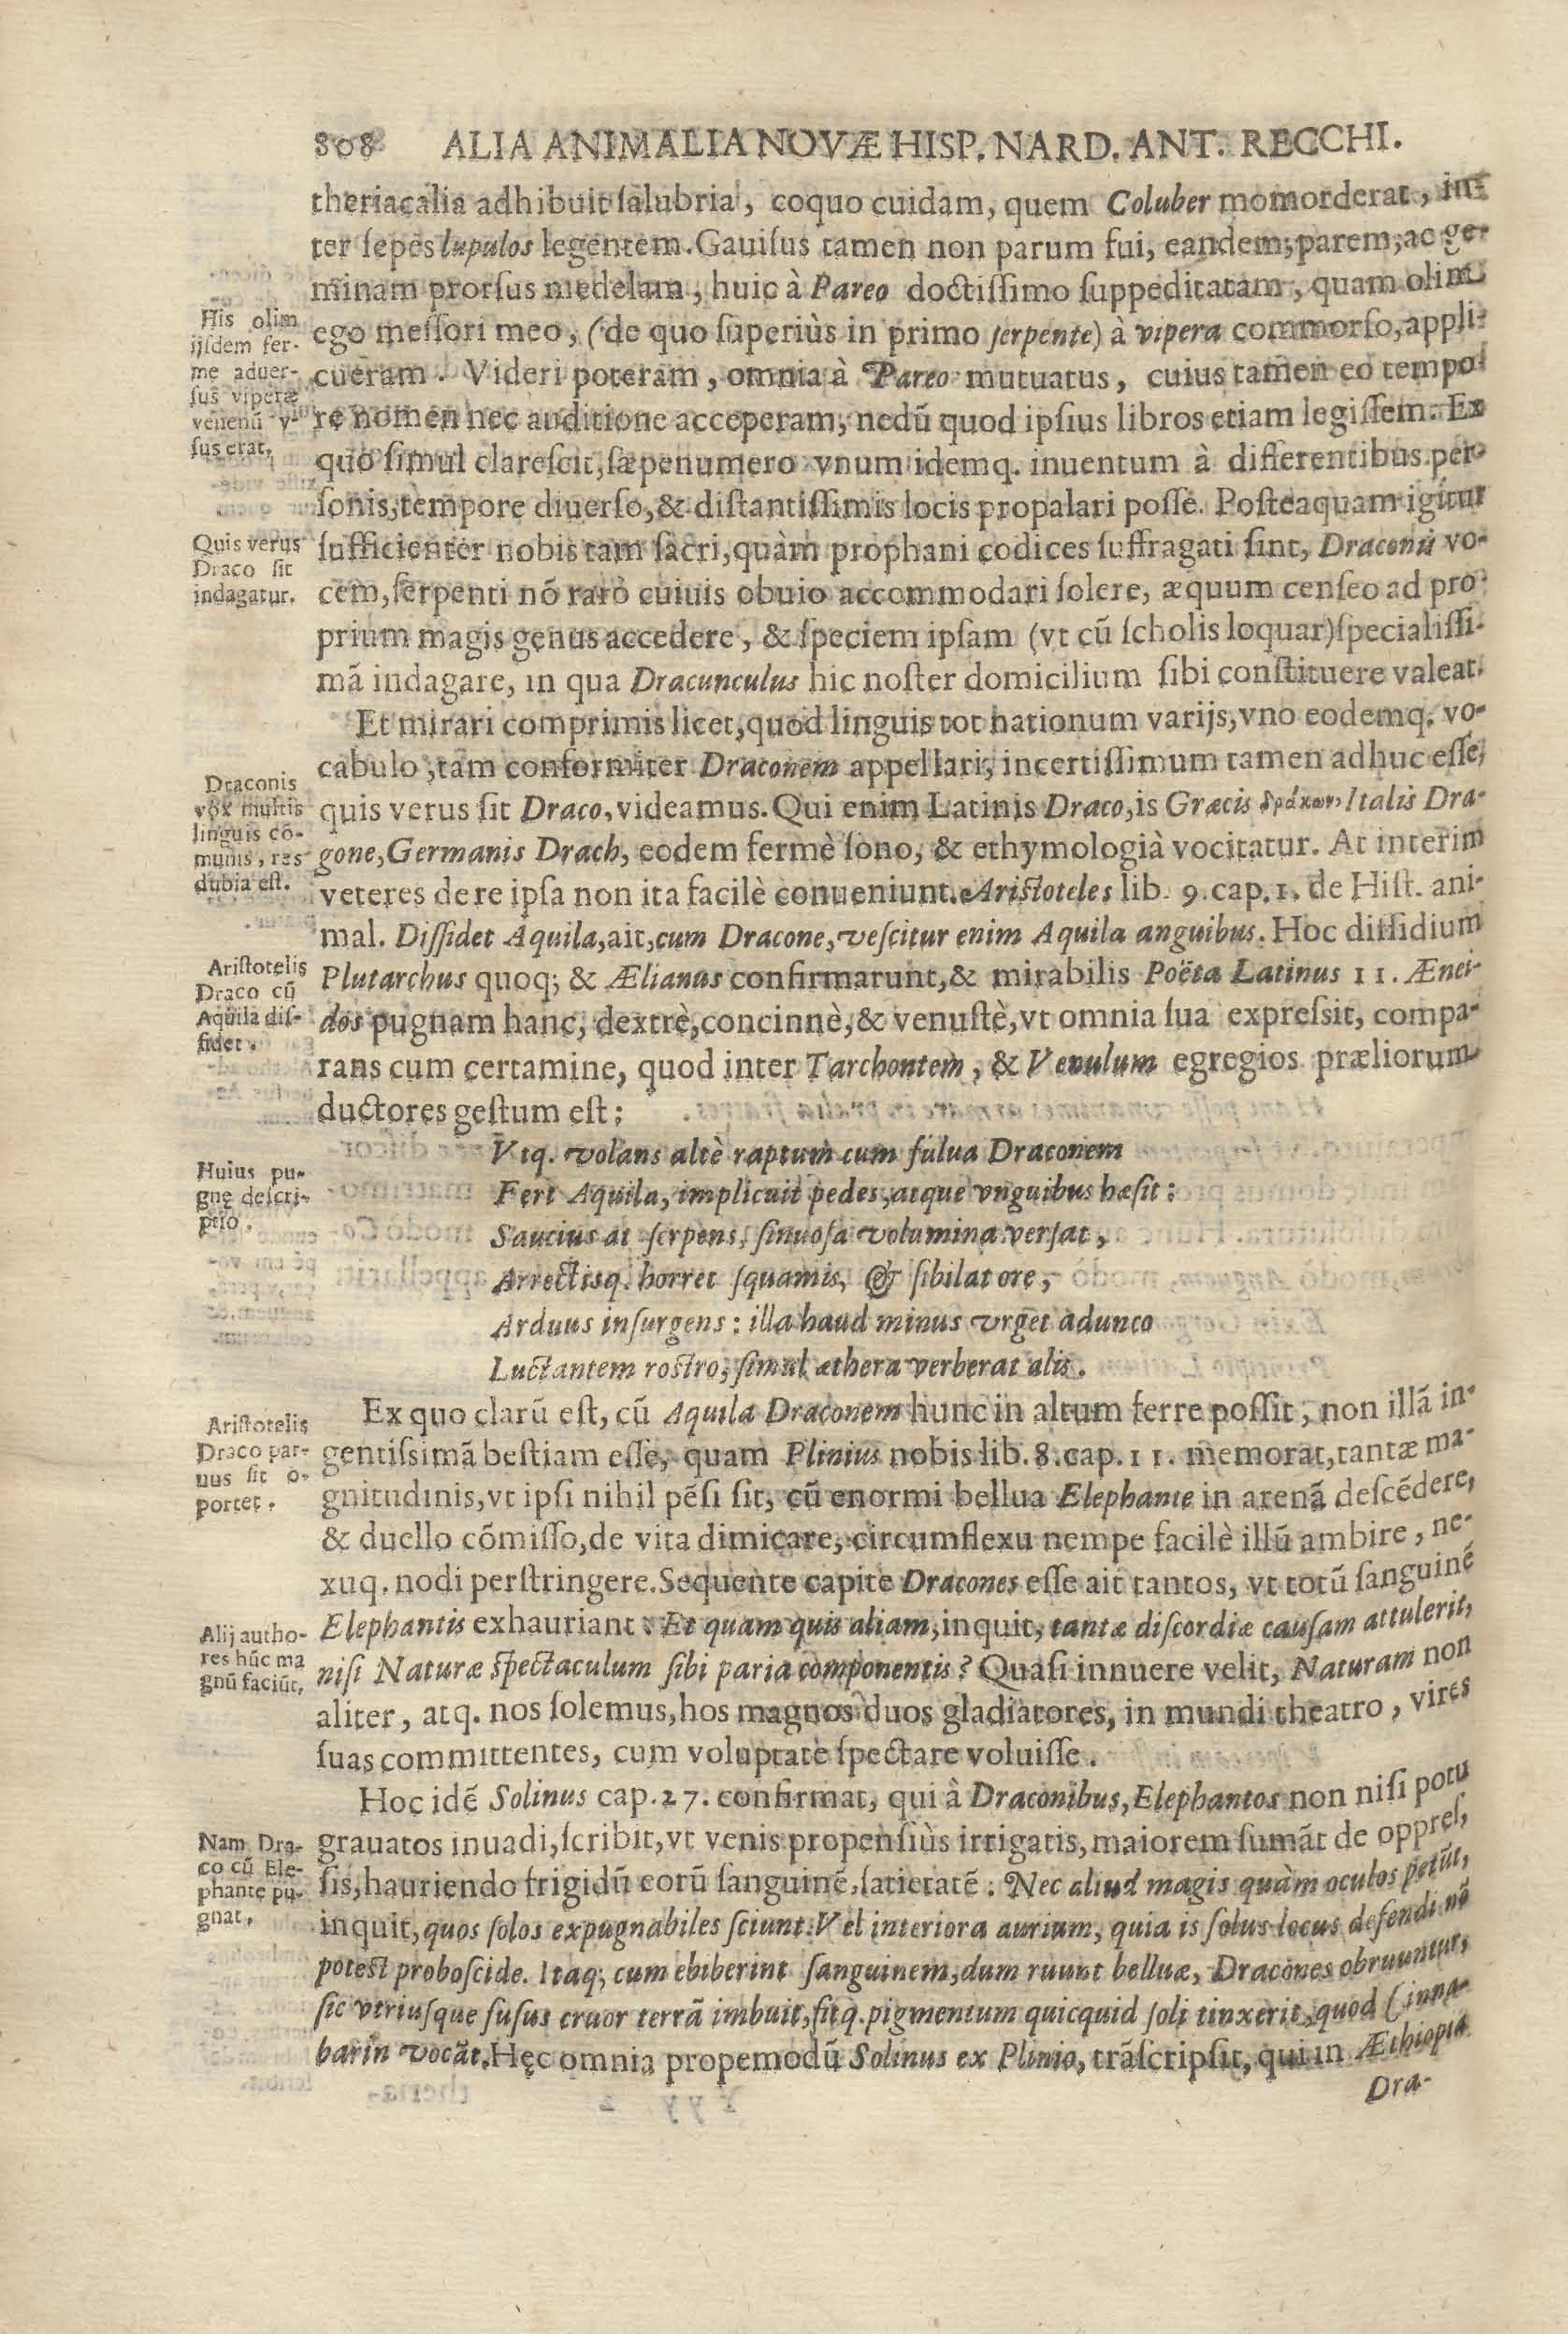 808 ALIA ANIMALIA NOVÆ HISP. NARD. ANT. RECCHI.
theriacalia adhibuit ſalubria, coquo cuidam, quem Coluber momorderat, in-
ter ſepes lupulos legentem. Gauiſus tamen non parum fui, eandem, parem, ac ge-
minam prorſus medelam, huic à Pareo doctiſſimo ſuppeditatam, quam olim
ego meſſori meo, (de quo ſuperiùs in primo ſerpente) à vipera commorſo, appli-
cueram. Videri poteram, omnia à Pareo mutuatus, cuius tamen eo tempo-
re nomen nec auditione acceperam, nedū quod ipſius libros etiam legiſſem. Ex
quo ſimul clareſcit, ſæpenumero vnum idemq. inuentum à differentibus per-
ſonis, tempore diuerſo, & diſtantiſſimis locis propalari poſſe. Poſteaquam igitur
ſufficienter nobis tam ſacri, quàm prophani codices ſuffragati ſint, Draconis vo-
cem, ſerpenti nō rarò cuiuis obuio accommodari ſolere, æquum cenſeo ad pro-
prium magis genus accedere, & ſpeciem ipſam (vt cū ſcholis loquar) ſpecialiſſi-
mā indagare, in qua Dracunculus hic noſter domicilium ſibi conſtituere valeat.
Et mirari comprimis licet, quod linguis tot nationum varijs, vno eodemq. vo-
cabulo, tàm conformiter Draconem appellari, incertiſſimum tamen adhuc eſſe,
quis verus ſit Draco, videamus. Qui enim Latinis Draco, is Græcis δράκων, Italis Dra-
gone, Germanis Drach, eodem fermè ſono, & ethymologià vocitatur. At interim
veteres de re ipſa non ita facilè conueniunt. Ariſtoteles lib. 9. cap. 1. de Hiſt. ani-
mal. Diſſidet Aquila, ait, cum Dracone, veſcitur enim Aquila anguibus. Hoc diſſidium
Plutarchus quoq; & Ælianus confirmarunt, & mirabilis Poëta Latinus 11. Ænei-
dos pugnam hanc, dextrè, concinnè, & venuſtè, vt omnia ſua expreſsit, compa-
rans cum certamine, quod inter Tarchontem, & Venulum egregios præliorum
ductores geſtum eſt:
Vtq. volans altè raptum cum fulua Draconem
Fert Aquila, implicuit pedes, atque vnguibus hæſit:
Saucius at ſerpens, ſinuoſa volumina verſat,
Arrectisq. horret ſquamis, & ſibilat ore,
Arduus inſurgens: illa haud minus vrget adunco
Luctantem roſtro, ſimul æthera verberat alis.
Ex quo clarū eſt, cū Aquila Draconem hunc in altum ferre poſſit, non illā in-
gentiſsimā beſtiam eſſe, quam Plinius nobis lib. 8. cap. 11. memorat, tantæ ma-
gnitudinis, vt ipſi nihil pēſi ſit, cū enormi bellua Elephante in arenā deſcēdere,
& duello cōmiſſo, de vita dimicare, circumflexu nempe facilè illū ambire, ne-
xuq. nodi perſtringere. Sequente capite Dracones eſſe ait tantos, vt totū ſanguinē
Elephantis exhauriant: Et quam quis aliam, inquit, tantæ diſcordiæ cauſam attulerit,
niſi Naturæ ſpectaculum ſibi paria componentis? Quaſi innuere velit, Naturam non
aliter, atq. nos ſolemus, hos magnos duos gladiatores, in mundi theatro, vires
ſuas committentes, cum voluptate ſpectare voluiſſe.
Hoc idē Solinus cap. 27. confirmat, qui à Draconibus, Elephantos non niſi potu
grauatos inuadi, ſcribit, vt venis propenſiùs irrigatis, maiorem ſumāt de oppreſ,
ſis, hauriendo frigidū eorū ſanguinē, ſatietatē. Nec aliud magis quàm oculos petūt,
inquit, quos ſolos expugnabiles ſciunt. Vel interiora aurium, quia is ſolus locus defendi nō
poteſt proboſcide. Itaq; cum ebiberint ſanguinem, dum ruunt belluæ, Dracones obruuntur,
ſic vtriuſque fuſus cruor terrā imbuit, fitq. pigmentum quicquid ſoli tinxerit, quod Cinna-
barin vocāt. Hęc omnia propemodū Solinus ex Plinio, trāſcripſit, qui in Æthiopia
Dra-
His olim
ijſdem fer-
me aduer-
ſus viperæ
venenū v-
ſus erat.
Quis verus
Draco ſit
indagatur.
Draconis
vox multis
linguis cō-
munis, res
dubia eſt.
Ariſtotelis
Draco cū
Aquila diſ-
ſidet.
Huius pu-
gnę deſcri-
ptio.
Ariſtotelis
Draco par-
uus ſit o-
portet.
Alij autho-
res hūc ma
gnū faciūt.
Nam Dra-
co cū Ele-
phante pu-
gnat.